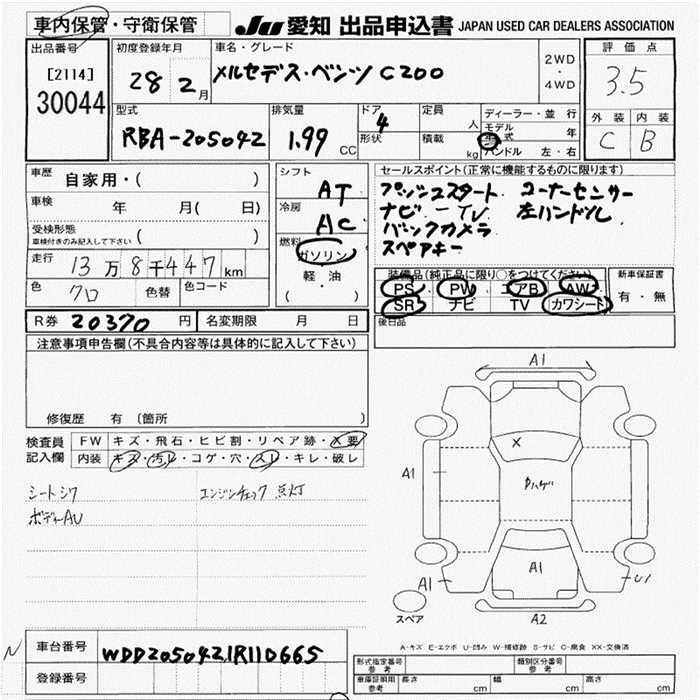 車内保管・守衛保管 JU 愛知 出品申込書 JAPAN USED CAR DEALERS ASSOCIATION
出品番号
[2114]
30044
初度登録年月
28 2月
車名・グレード
メルセデス・ベンツ C200
2WD
・
4WD
評価点
3.5
外装 内装
C B
型式
RBA-205042
排気量
1.99 CC
ドア
4
形状
定員
人
積載
kg
ディーラー・並行
モデル
年式 年
ハンドル 左・右
車歴 自家用・( )
車検 年 月(日 )
受検形態
車検付きのみ記入して下さい ( )
走行 13万8千447km
色 クロ 色替 色コード
シフト
AT
冷房
AC
燃料
ガソリン
軽・油
( )
セールスポイント(正常に機能するものに限ります)
プッシュスタート コーナーセンサー
ナビ-TV 左ハンドル
バックカメラ
スペアキー
装備品(純正品に限り○をつけてください)
PS PW エアB AW
SR ナビ TV カワシート
新車保証書
有・無
後日品
R券 20370円 名変期限 月 日
注意事項申告欄(不具合内容等は具体的に記入して下さい)
修復歴 有 〔箇所 〕
検査員
記入欄
FW キズ・飛石・ヒビ割・リペア跡・X要
内装 キズ・汚レ・コゲ・穴・スレ・キレ・破レ
シートシワ エンジンチェック 点灯
ボディーAU
A1
X
A1
A1
A1
U1
A2
スペア
A-キズ E-エクボ U-凹み W-補修跡 S-サビ C-腐食 XX-交換済
N
車台番号 WDD2050421R110665
登録番号
形式指定番号
参考
類別区分番号
参考
車庫証明用
参考
長さ cm 幅 cm 高さ cm